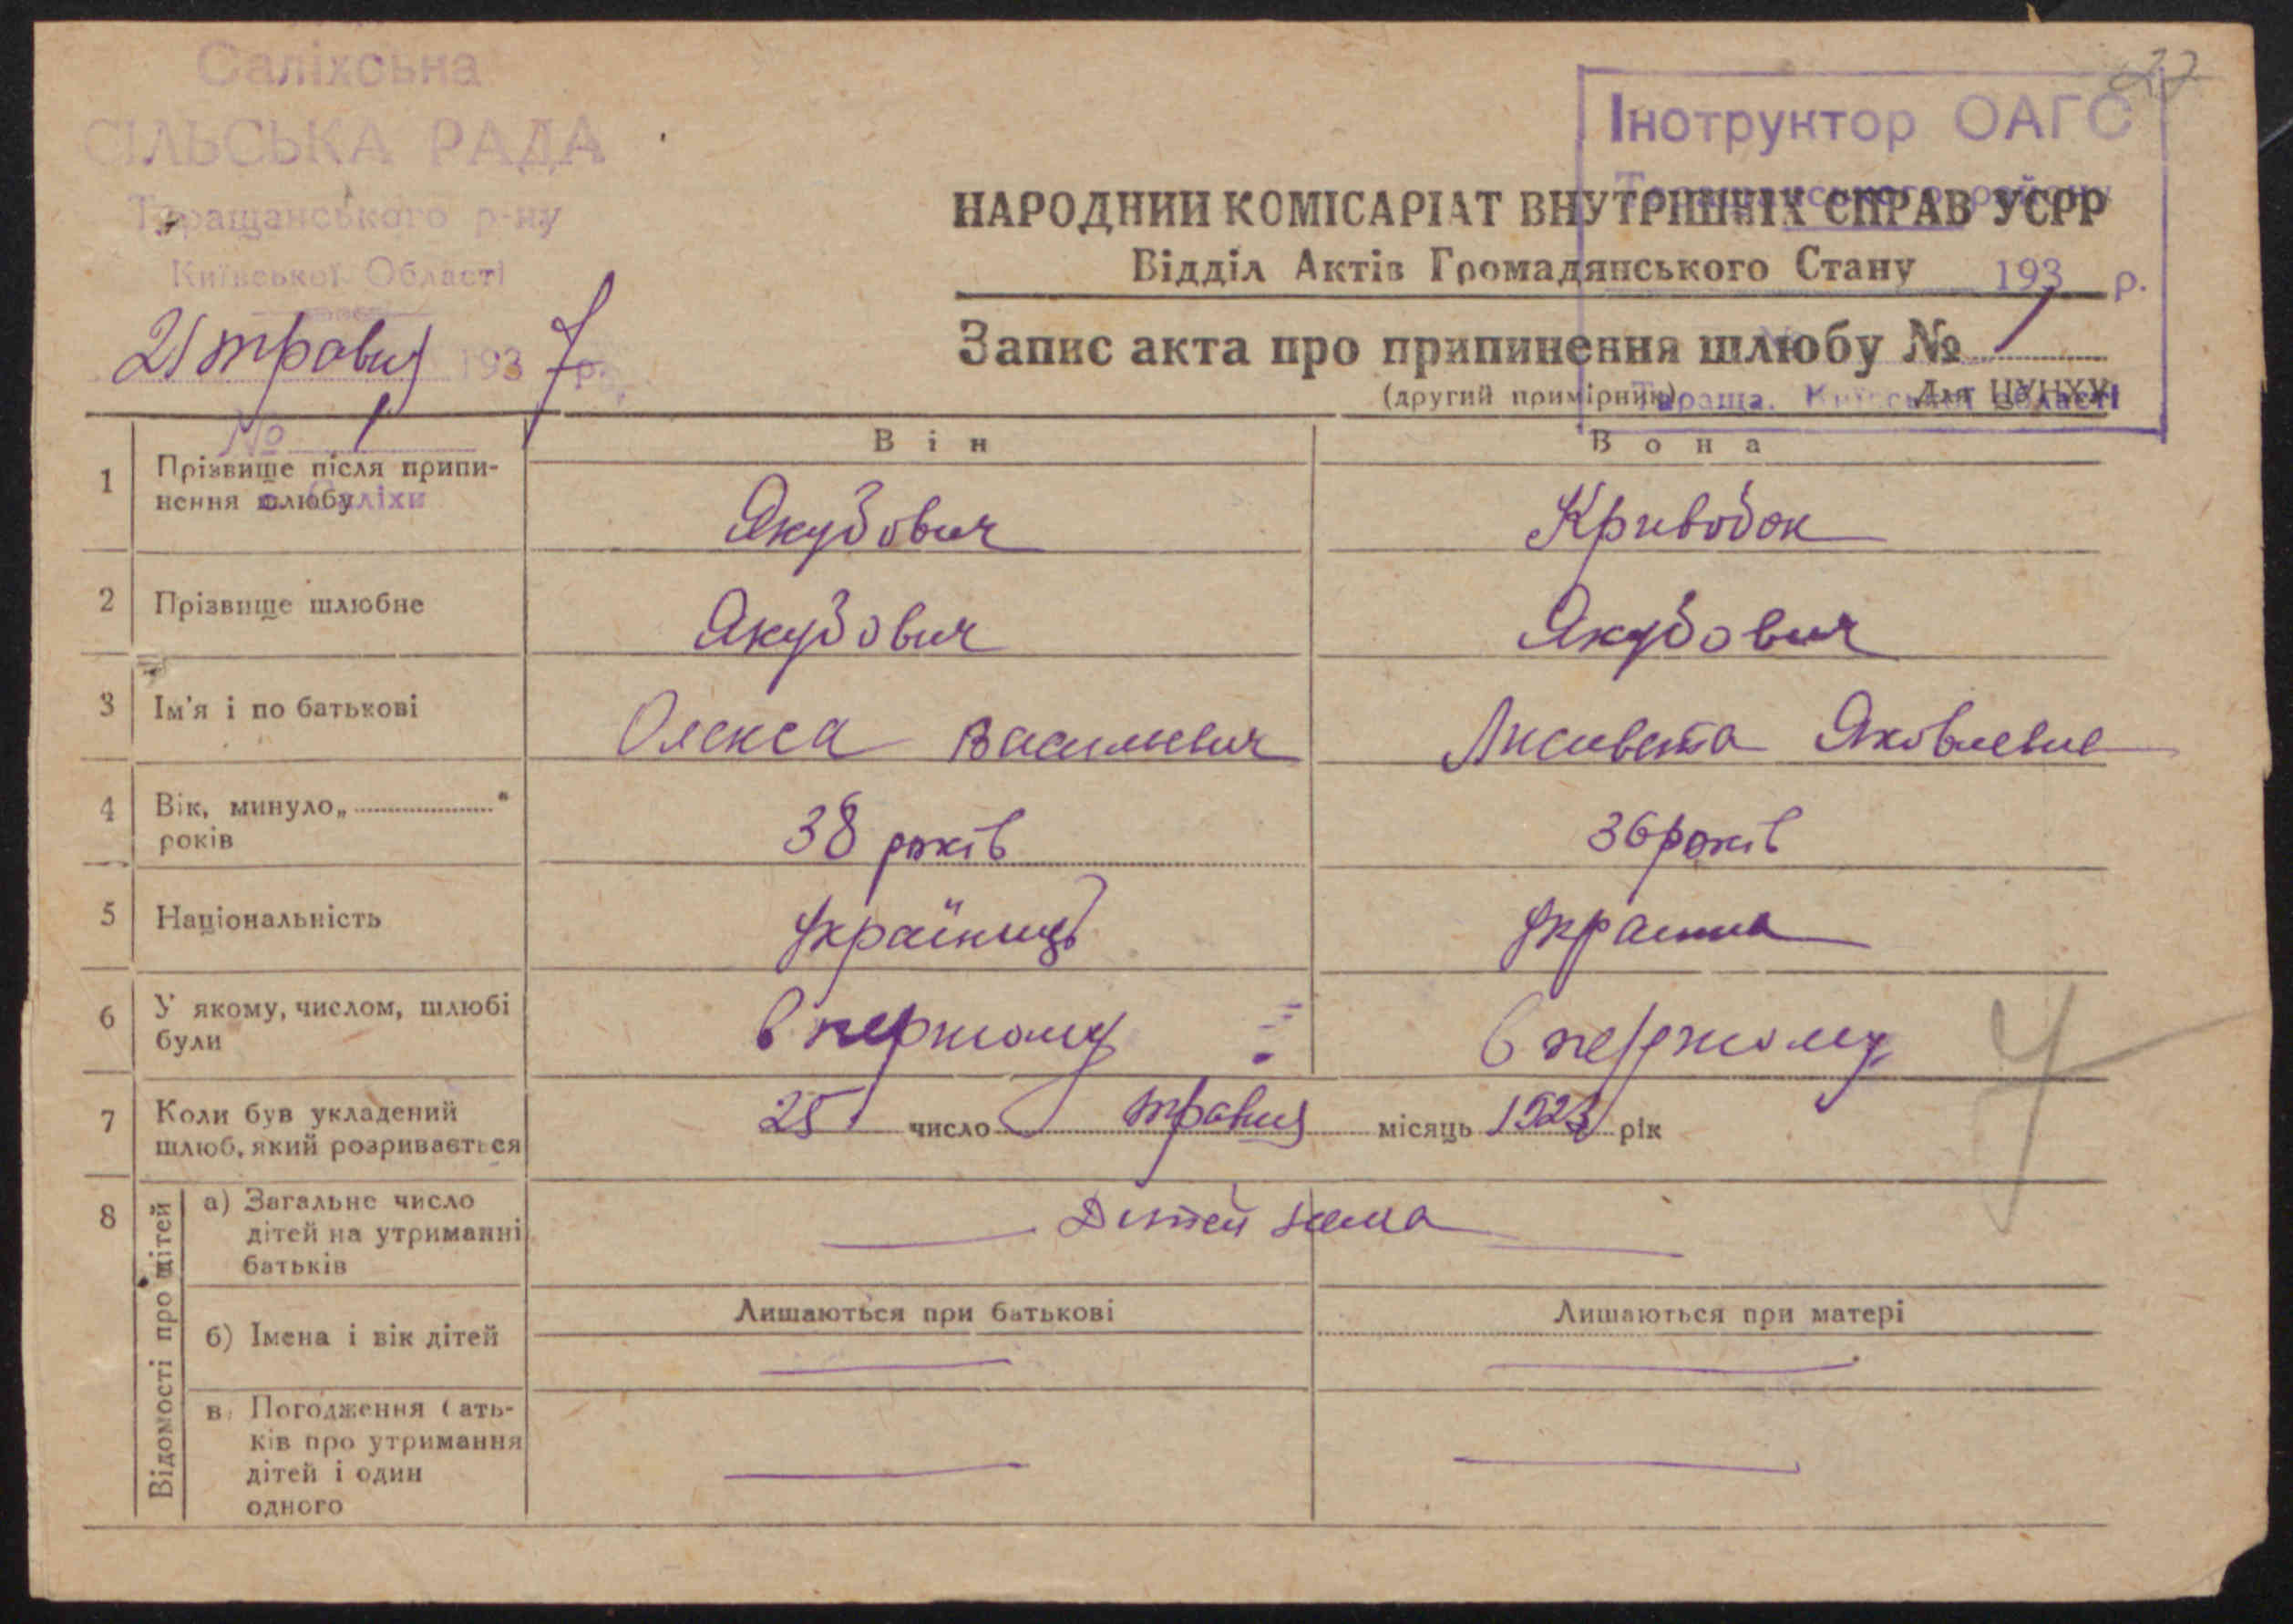 Саліхська
СІЛЬСЬКА РАДА
Таращанського р-ну
Київської Області
21 травня 1937 р.
№ 1
с. Саліхи
27
Інструктор ОАГС
Таращанського району
193 р.
Тараща, Київської області
НАРОДНИЙ КОМІСАРІАТ ВНУТРІШНІХ СПРАВ УСРР
Відділ Актів Громадянського Стану
Запис акта про припинення шлюбу № 1
(другий примірник) Для ЦУНХУ
Він Вона
1 Прізвище після припи-
нення шлюбу Якубович Кривобок
2 Прізвище шлюбне Якубович Якубович
3 Ім'я і по батькові Олекса Василиевич Лисивета Яковлевне
4 Вік, минуло „ “
років 38 років 36 років
5 Національність Українець Украинка
6 У якому, числом, шлюбі
були в першому в першому
7 Коли був укладений
шлюб, який розривається 25 число травня місяць 1923 рік
8 Відомості про дітей
а) Загальне число
дітей на утриманні
батьків Дітей нема
Лишаються при батькові Лишаються при матері
б) Імена і вік дітей
в) Погодження бать-
ків про утримання
дітей і один
одного